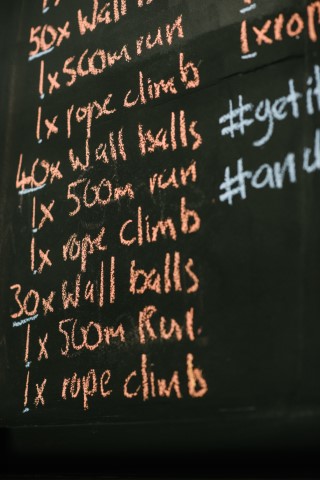 50x Wall
1x 500m run
1x rope climb
40x Wall balls
1x 500m run
1x rope climb
30x Wall balls
1x 500m Run.
1x rope climb
1x rop
#get
#and